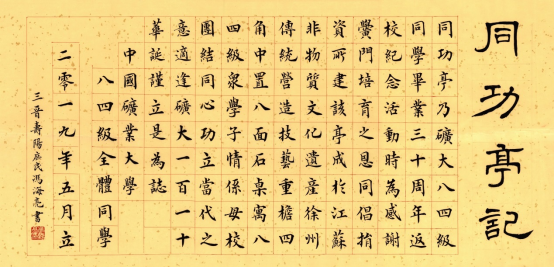 同功亭記
同功亭乃礦大八四級
同學畢業三十周年返
校紀念活動時為感謝
黌門培育之恩同倡捐
資所建該亭成於江蘇
非物質文化遺產徐州
傳統營造技藝重檐四
角中置八面石桌寓八
四級眾學子情係母校
團結同心功立當代之
意適逢礦大一百一十
華誕謹立是為誌
中國礦業大學
八四級全體同學
二零一九年五月立
三晉壽陽庶民馮海亮書